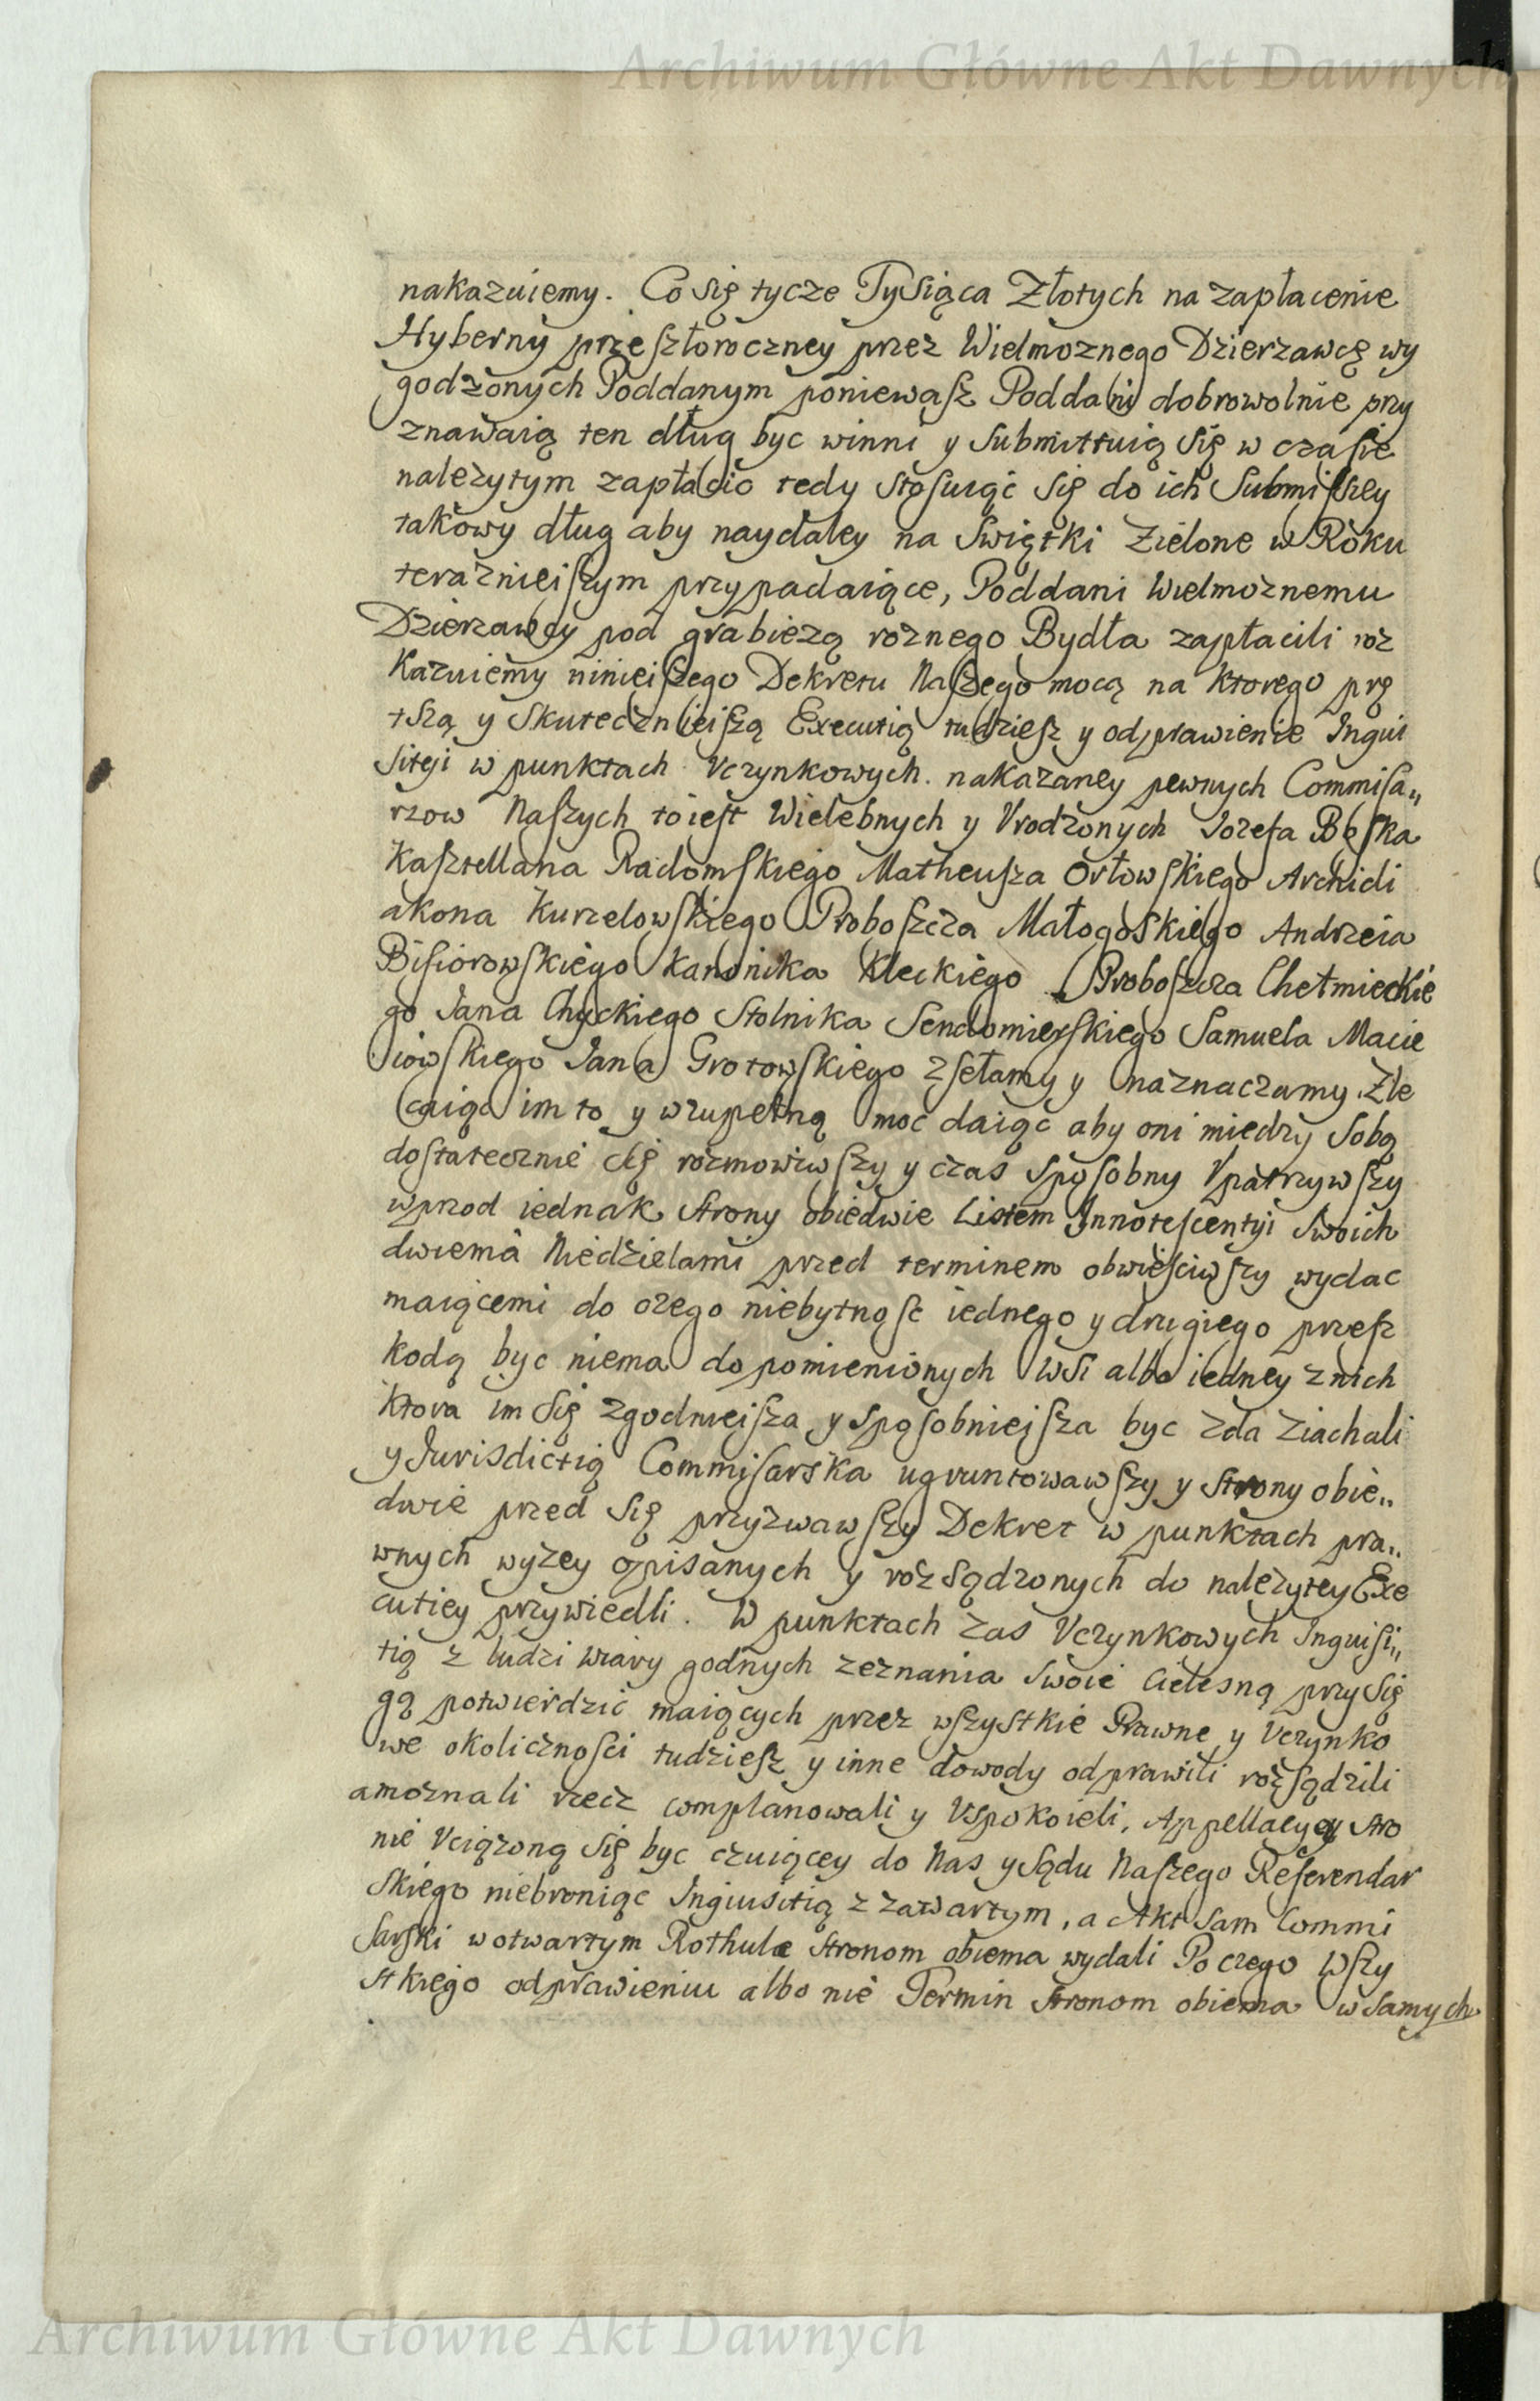 Archiwum Główne Akt Dawnych
nakazuiemy. Co się tycze Tysiąca Złotych na zapłacenie
Hyberny przeszłoroczney przez Wielmoznego Dzierzawcę wy
godzonych Poddanym poniewasz Poddani dobrowolnie przy
znawaią ten dług byc winni y submittuią się w czasie
nalezytym zapłacic tedy stosuiąc się do ich Submiszey
takowy dług aby naydaley na Swiątki Zielone w Roku
terazniejszym przypadaiące, Poddani Wielmoznemu
Dzierzawcy pod grabiezą roznego Bydła zapłacili roz
kazuiemy ninieiszego Dekretu Naszego mocą na ktorego prę
tszą y skutecznieiszą Executią tudziesz y odprawienie Inqui
sitiji w punktach Vczynkowych nakazaney pewnych Commisa„
rzow Naszych to iest Wielebnych y Vrodzonych Jozefa Boska
Kasztellana Radomskiego Matheusza Orłowskiego Archidi
akona Kurzelowskiego Proboszcza Małogoskiego Andrzeia
Bisiorowskiego Kanonika Kleckiego Proboszcza Chełmieckie
go Jana Chyckiego Stolnika Sendomierskiego Samuela Macie
iowskiego Jana Grotowskiego zsełamy y naznaczamy. Zle
caiąc im to y wzupełną moc daiąc aby oni miedzy sobą
dostatecznie się rozmowiwszy y czas sposobny Vpatrzywszy
wprzod iednak strony obiedwie Listem Innotescentyi swoich
dwiema Niedzielami przed terminem obwieściwszy wydac
maiącemi do czego niebytnosc iednego y drugiego przesz
kodą byc niema do pomienionych Wsi albo iedney z nich
ktora im się zgodnieisza y sposobniejsza byc zda ziachali
y Jurisdictią Commisarska ugruntowawszy y strony obie„
dwie przed się przyzwawszy Dekret w punktach pra„
wnych wyzey opisanych y rozsądzonych do nalezytey Exe
cutiey przywiedli. W punktach zas Vczynkowych Inquisi„
tią z ludzi wiary godnych zeznania swoie Cielesną przysię
gą potwierdzic maiących przez wszystkie Prawne y Vczynko
we okolicznosci tudziesz y inne dowody odprawili rozsądzili
a moznali rzecz complanowali y Vspokoieli, Appellacyey stro
nie Vciązoną się byc czuiącey do Nas y Sądu Naszego Referendar
skiego niebroniąc Inquisitią z zawartym, a Akt sam Commi
sarski w otwartym Rothule stronom obiema wydali Po czego wszy
stkiego odprawieniu albo nie Termin stronom obiema w samych
Archiwum Główne Akt Dawnych